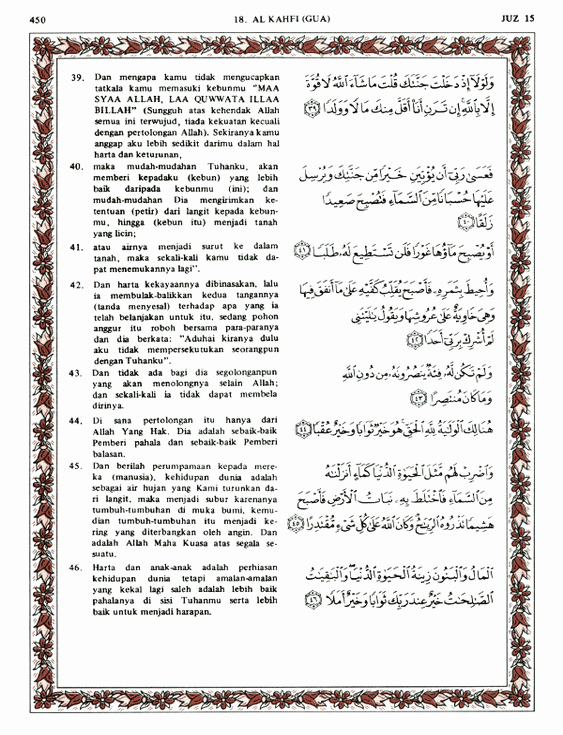 450
18. AL KAHFI (GUA)
JUZ 15
39. Dan mengapa kamu tidak mengucapkan
tatkala kamu memasuki kebunmu "MAA
SYAA ALLAH, LAA QUWWATA ILLAA
BILLAH" (Sungguh atas kehendak Allah
semua ini terwujud, tiada kekuatan kecuali
dengan pertolongan Allah). Sekiranya kamu
anggap aku lebih sedikit darimu dalam hal
harta dan keturunan,
40. maka mudah-mudahan Tuhanku, akan
memberi kepadaku (kebun) yang lebih
baik daripada kebunmu (ini); dan
mudah-mudahan Dia mengirimkan ke-
tentuan (petir) dari langit kepada kebun-
mu, hingga (kebun itu) menjadi tanah
yang licin;
41. atau airnya menjadi surut ke dalam
tanah, maka sekali-kali kamu tidak da-
pat menemukannya lagi".
42. Dan harta kekayaannya dibinasakan, lalu
ia membulak-balikkan kedua tangannya
(tanda menyesal) terhadap apa yang ia
telah belanjakan untuk itu, sedang pohon
anggur itu roboh bersama para-paranya
dan dia berkata: "Aduhai kiranya dulu
aku tidak mempersekutukan seorangpun
dengan Tuhanku".
43. Dan tidak ada bagi dia segolonganpun
yang akan menolongnya selain Allah;
dan sekali-kali ia tidak dapat membela
dirinya.
44. Di sana pertolongan itu hanya dari
Allah Yang Hak. Dia adalah sebaik-baik
Pemberi pahala dan sebaik-baik Pemberi
balasan.
45. Dan berilah perumpamaan kepada mere-
ka (manusia), kehidupan dunia adalah
sebagai air hujan yang Kami turunkan da-
ri langit, maka menjadi subur karenanya
tumbuh-tumbuhan di muka bumi, kemu-
dian tumbuh-tumbuhan itu menjadi ke-
ring yang diterbangkan oleh angin. Dan
adalah Allah Maha Kuasa atas segala se-
suatu.
46. Harta dan anak-anak adalah perhiasan
kehidupan dunia tetapi amalan-amalan
yang kekal lagi saleh adalah lebih baik
pahalanya di sisi Tuhanmu serta lebih
baik untuk menjadi harapan.
وَلَوْلَا إِذْ دَخَلْتَ جَنَّتَكَ قُلْتَ مَا شَاءَ اللَّهُ لَا قُوَّةَ
إِلَّا بِاللَّهِ إِن تَرَنِ أَنَا أَقَلَّ مِنكَ مَالًا وَوَلَدًا ﴿٣٩﴾
فَعَسَى رَبِّي أَن يُؤْتِيَنِ خَيْرًا مِّن جَنَّتِكَ وَيُرْسِلَ
عَلَيْهَا حُسْبَانًا مِّنَ السَّمَاءِ فَتُصْبِحَ صَعِيدًا
زَلَقًا ﴿٤٠﴾
أَوْ يُصْبِحَ مَاؤُهَا غَوْرًا فَلَن تَسْتَطِيعَ لَهُ طَلَبًا ﴿٤١﴾
وَأُحِيطَ بِثَمَرِهِ فَأَصْبَحَ يُقَلِّبُ كَفَّيْهِ عَلَى مَا أَنفَقَ فِيهَا
وَهِيَ خَاوِيَةٌ عَلَى عُرُوشِهَا وَيَقُولُ يَالَيْتَنِي
لَمْ أُشْرِكْ بِرَبِّي أَحَدًا ﴿٤٢﴾
وَلَمْ تَكُن لَّهُ فِئَةٌ يَنصُرُونَهُ مِن دُونِ اللَّهِ
وَمَا كَانَ مُنتَصِرًا ﴿٤٣﴾
هُنَالِكَ الْوَلَايَةُ لِلَّهِ الْحَقِّ هُوَ خَيْرٌ ثَوَابًا وَخَيْرٌ عُقْبًا ﴿٤٤﴾
وَاضْرِبْ لَهُم مَّثَلَ الْحَيَوةِ الدُّنْيَا كَمَاءٍ أَنزَلْنَهُ
مِنَ السَّمَاءِ فَاخْتَلَطَ بِهِ نَبَاتُ الْأَرْضِ فَأَصْبَحَ
هَشِيمًا تَذْرُوهُ الرِّيَحُ وَكَانَ اللَّهُ عَلَى كُلِّ شَيْءٍ مُّقْتَدِرًا ﴿٤٥﴾
الْمَالُ وَالْبَنُونَ زِينَةُ الْحَيَوةِ الدُّنْيَا وَالْبَقِيَتُ
الصَّلِحَتُ خَيْرٌ عِندَ رَبِّكَ ثَوَابًا وَخَيْرٌ أَمَلًا ﴿٤٦﴾